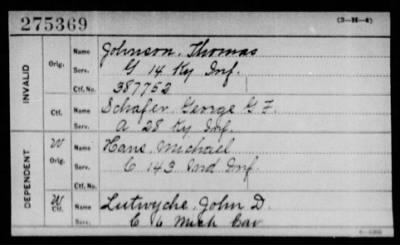 275369 (3-H-4)
INVALID
Orig. Name Johnson, Thomas
Serv. G 14 Ky Inf.
Ctf. No. 387752
Ctf. Name Schafer, George G. F.
Serv. A 28 Ky Inf.
DEPENDENT
W Orig. Name Hans, Michael
Serv. C 143 Ind Inf
Ctf. No.
W Ctf. Name Lutwyche, John D.
Serv. C 6 Mich Cav